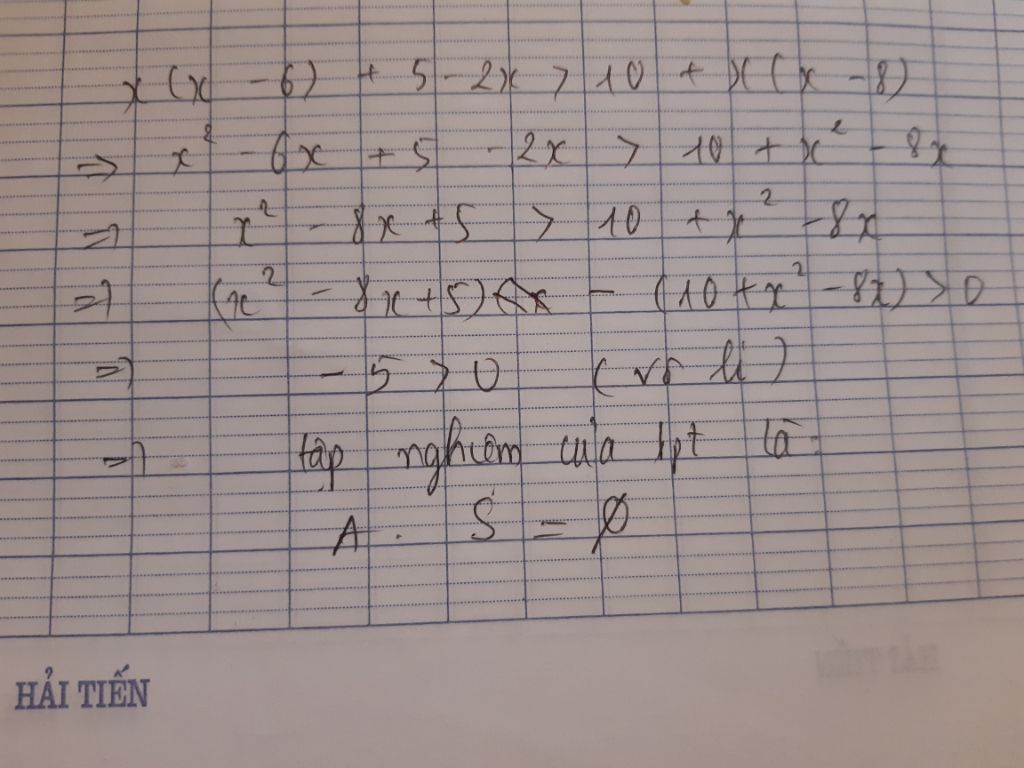 x(x - 6) + 5 - 2x > 10 + x(x - 8)
=> x² - 6x + 5 - 2x > 10 + x² - 8x
=> x² - 8x + 5 > 10 + x² - 8x
=> (x² - 8x + 5) - (10 + x² - 8x) > 0
=> - 5 > 0 (vô lí)
=> tập nghiệm của bpt là:
A. S = ∅
HẢI TIẾN